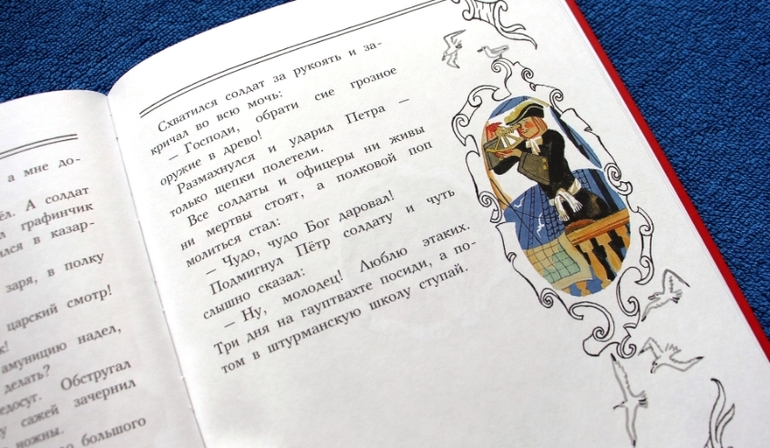 а мне до-
ёл. А солдат
графинчик
лся в казар-
заря, в полку
царский смотр!
к!
амуницию надел,
делать?
едосуг. Обстругал
у сажей зачернил
ножны.
большого
Схватился солдат за рукоять и за-
кричал во всю мочь:
— Господи, обрати сие грозное
оружие в древо!
Размахнулся и ударил Петра —
только щепки полетели.
Все солдаты и офицеры ни живы
ни мертвы стоят, а полковой поп
молиться стал:
— Чудо, чудо Бог даровал!
Подмигнул Пётр солдату и чуть
слышно сказал:
— Ну, молодец! Люблю этаких.
Три дня на гауптвахте посиди, а по-
том в штурманскую школу ступай.